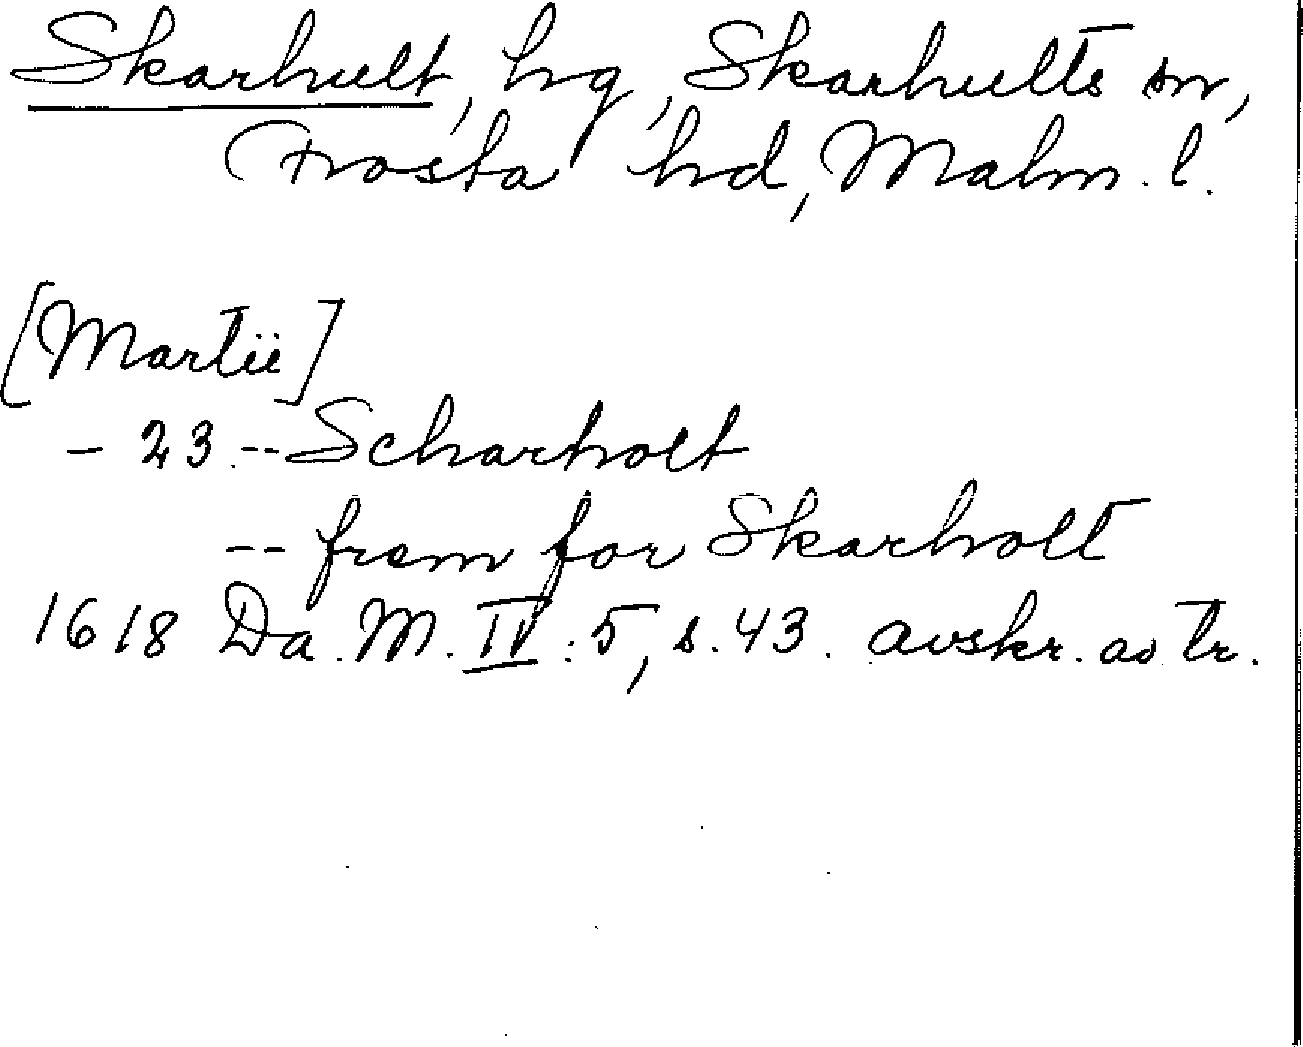 Skarhult, hg, Skarhults sn,
Frosta hd, Malm. l.
[Martii]
- 23. -- Scharholt
-- frem for Skarholt
1618 Da. M. IV: 5, s. 43. avskr. av tr.